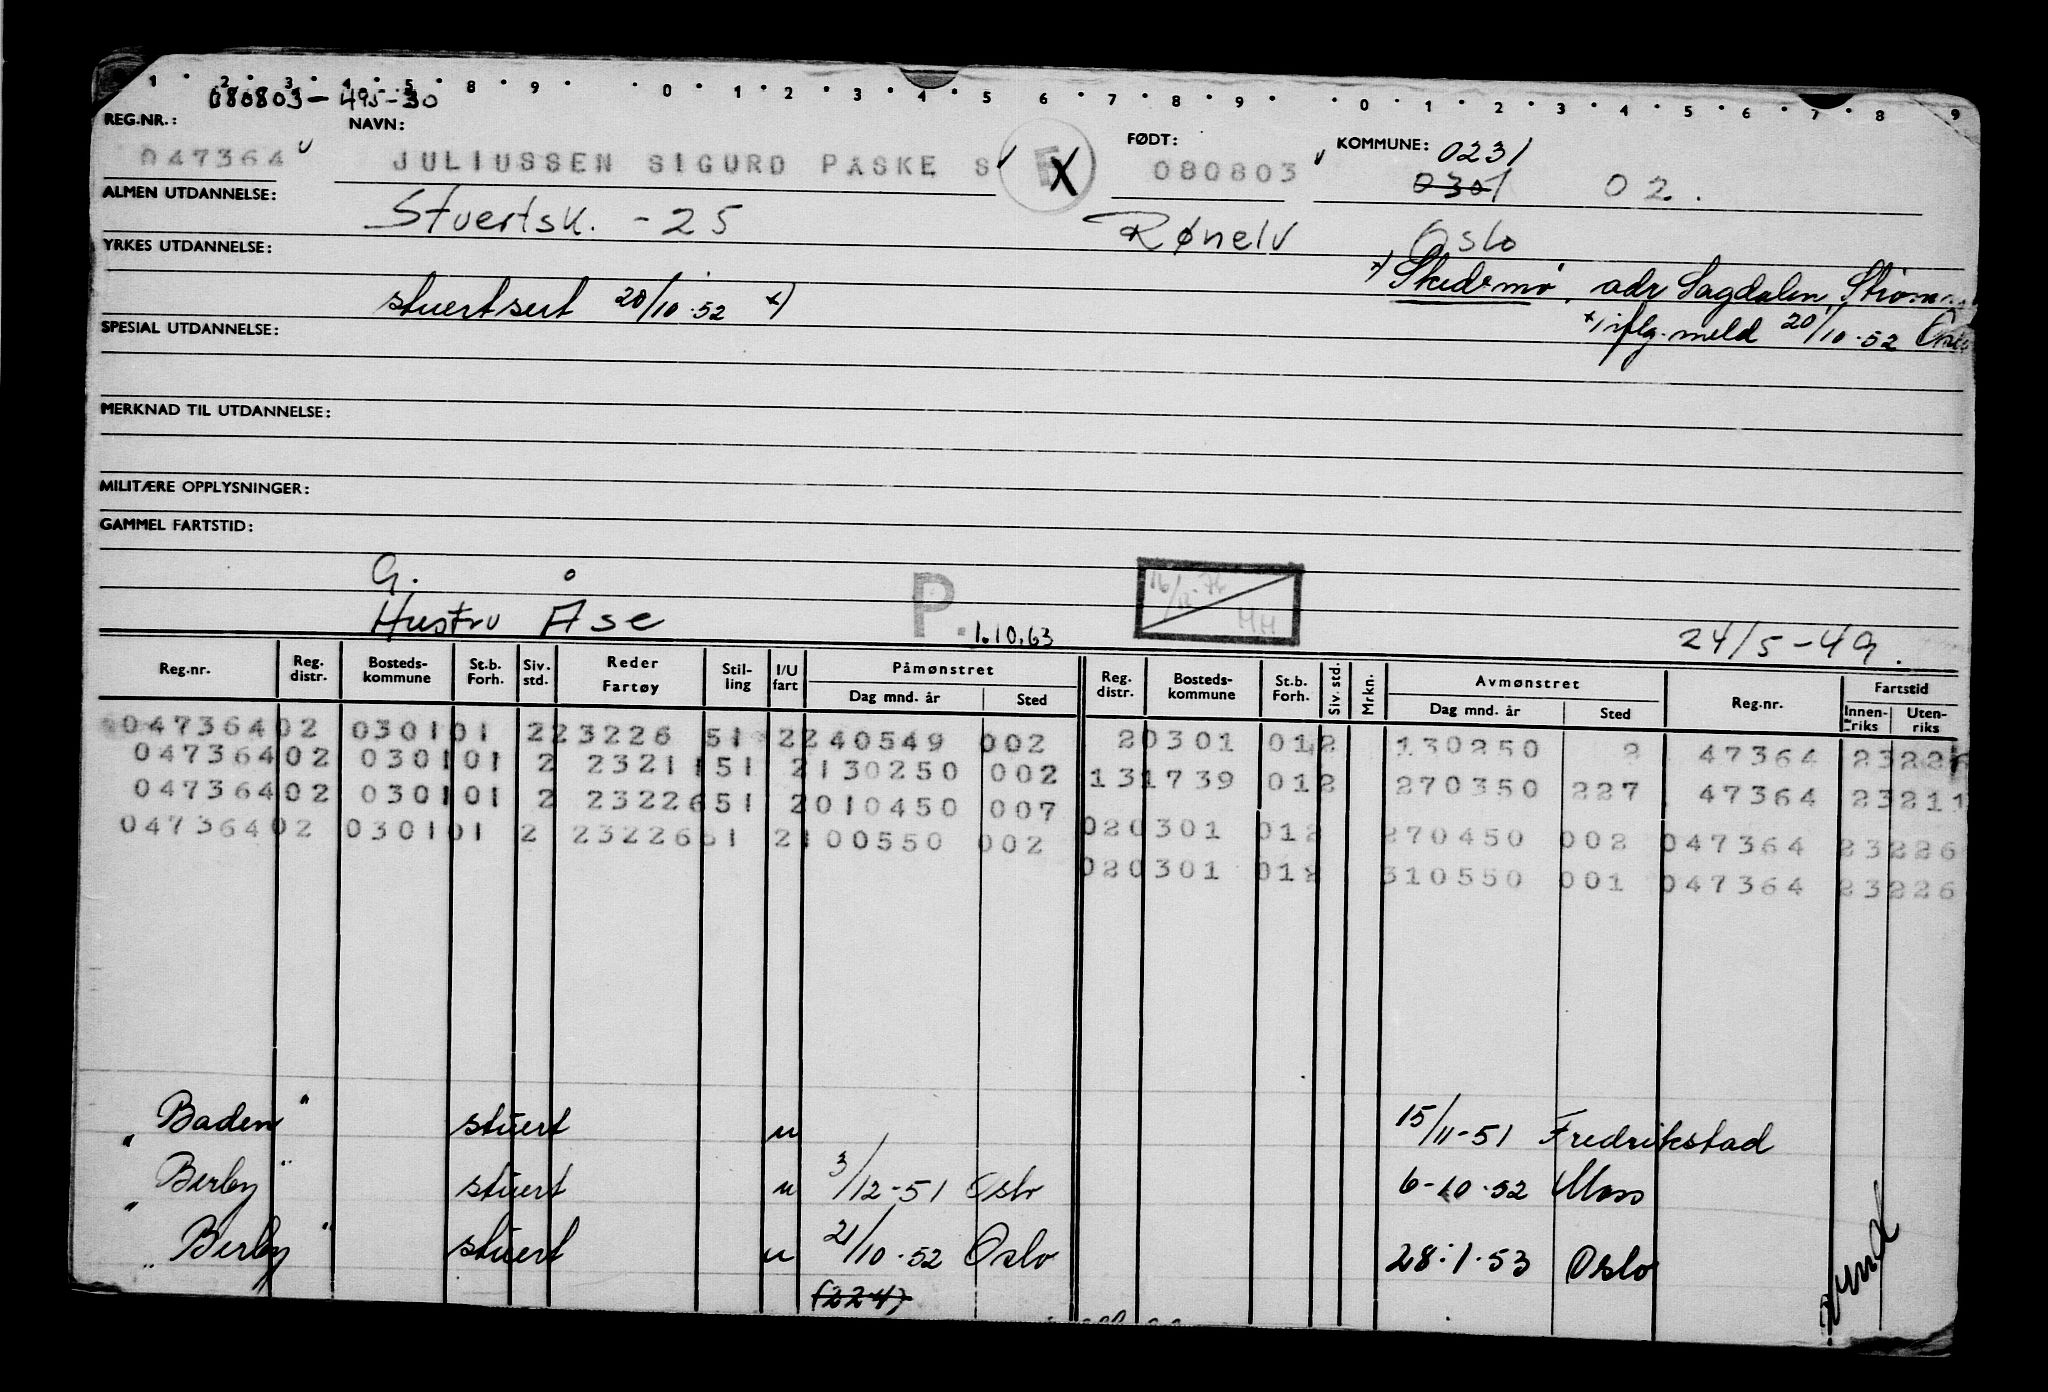 1 2 3 4 5 8 9 0 1 2 3 4 5 6 7 8 9 0 1 2 3 4 5 6 7 8 9
080803-495-30
REG.NR.: NAVN: FØDT: KOMMUNE: 0231
047364 JULIUSSEN SIGURD PASKE S X 080803 0301 02.
ALMEN UTDANNELSE: Stuertsk. -25 Rønelv Oslo
YRKES UTDANNELSE: x) Skedsmo, adr Sagdalen,
stuertsert 20/10.52 x)
x) iflg. meld 20/10.52
SPESIAL UTDANNELSE:
MERKNAD TIL UTDANNELSE:
MILITÆRE OPPLYSNINGER:
GAMMEL FARTSTID:
G. P. 16/11-74 HH
Hustru Åse 1.10.63 24/5-49.
Reg.nr. Reg. distr. Bosteds-kommune St.b. Forh. Siv. std. Reder Fartøy Stil-ling I/U fart Påmønstret Dag mnd. år Sted Reg. distr. Bosteds-kommune St.b. Forh. Siv. std. Mrkn. Avmønstret Dag mnd. år Sted Reg.nr. Fartstid Innen-riks Uten-riks
047364 02 0301 01 2 23226 51 2 240549 002 2 0301 01 2 130250 2 47364 23226
047364 02 0301 01 2 23211 51 2 130250 002 13 1739 01 2 270350 227 47364 23211
047364 02 0301 01 2 23226 51 2 010450 007 02 0301 01 2 270450 002 047364 23226
047364 02 0301 01 2 23226 51 2 100550 002 02 0301 01 2 310550 001 047364 23226
"Baden" stuert u 15/11-51 Fredrikstad
"Berby" stuert u 3/12-51 Oslo 6-10.52 Moss
"Berby" stuert u 21/10.52 Oslo 28.1.53 Oslo
(224)